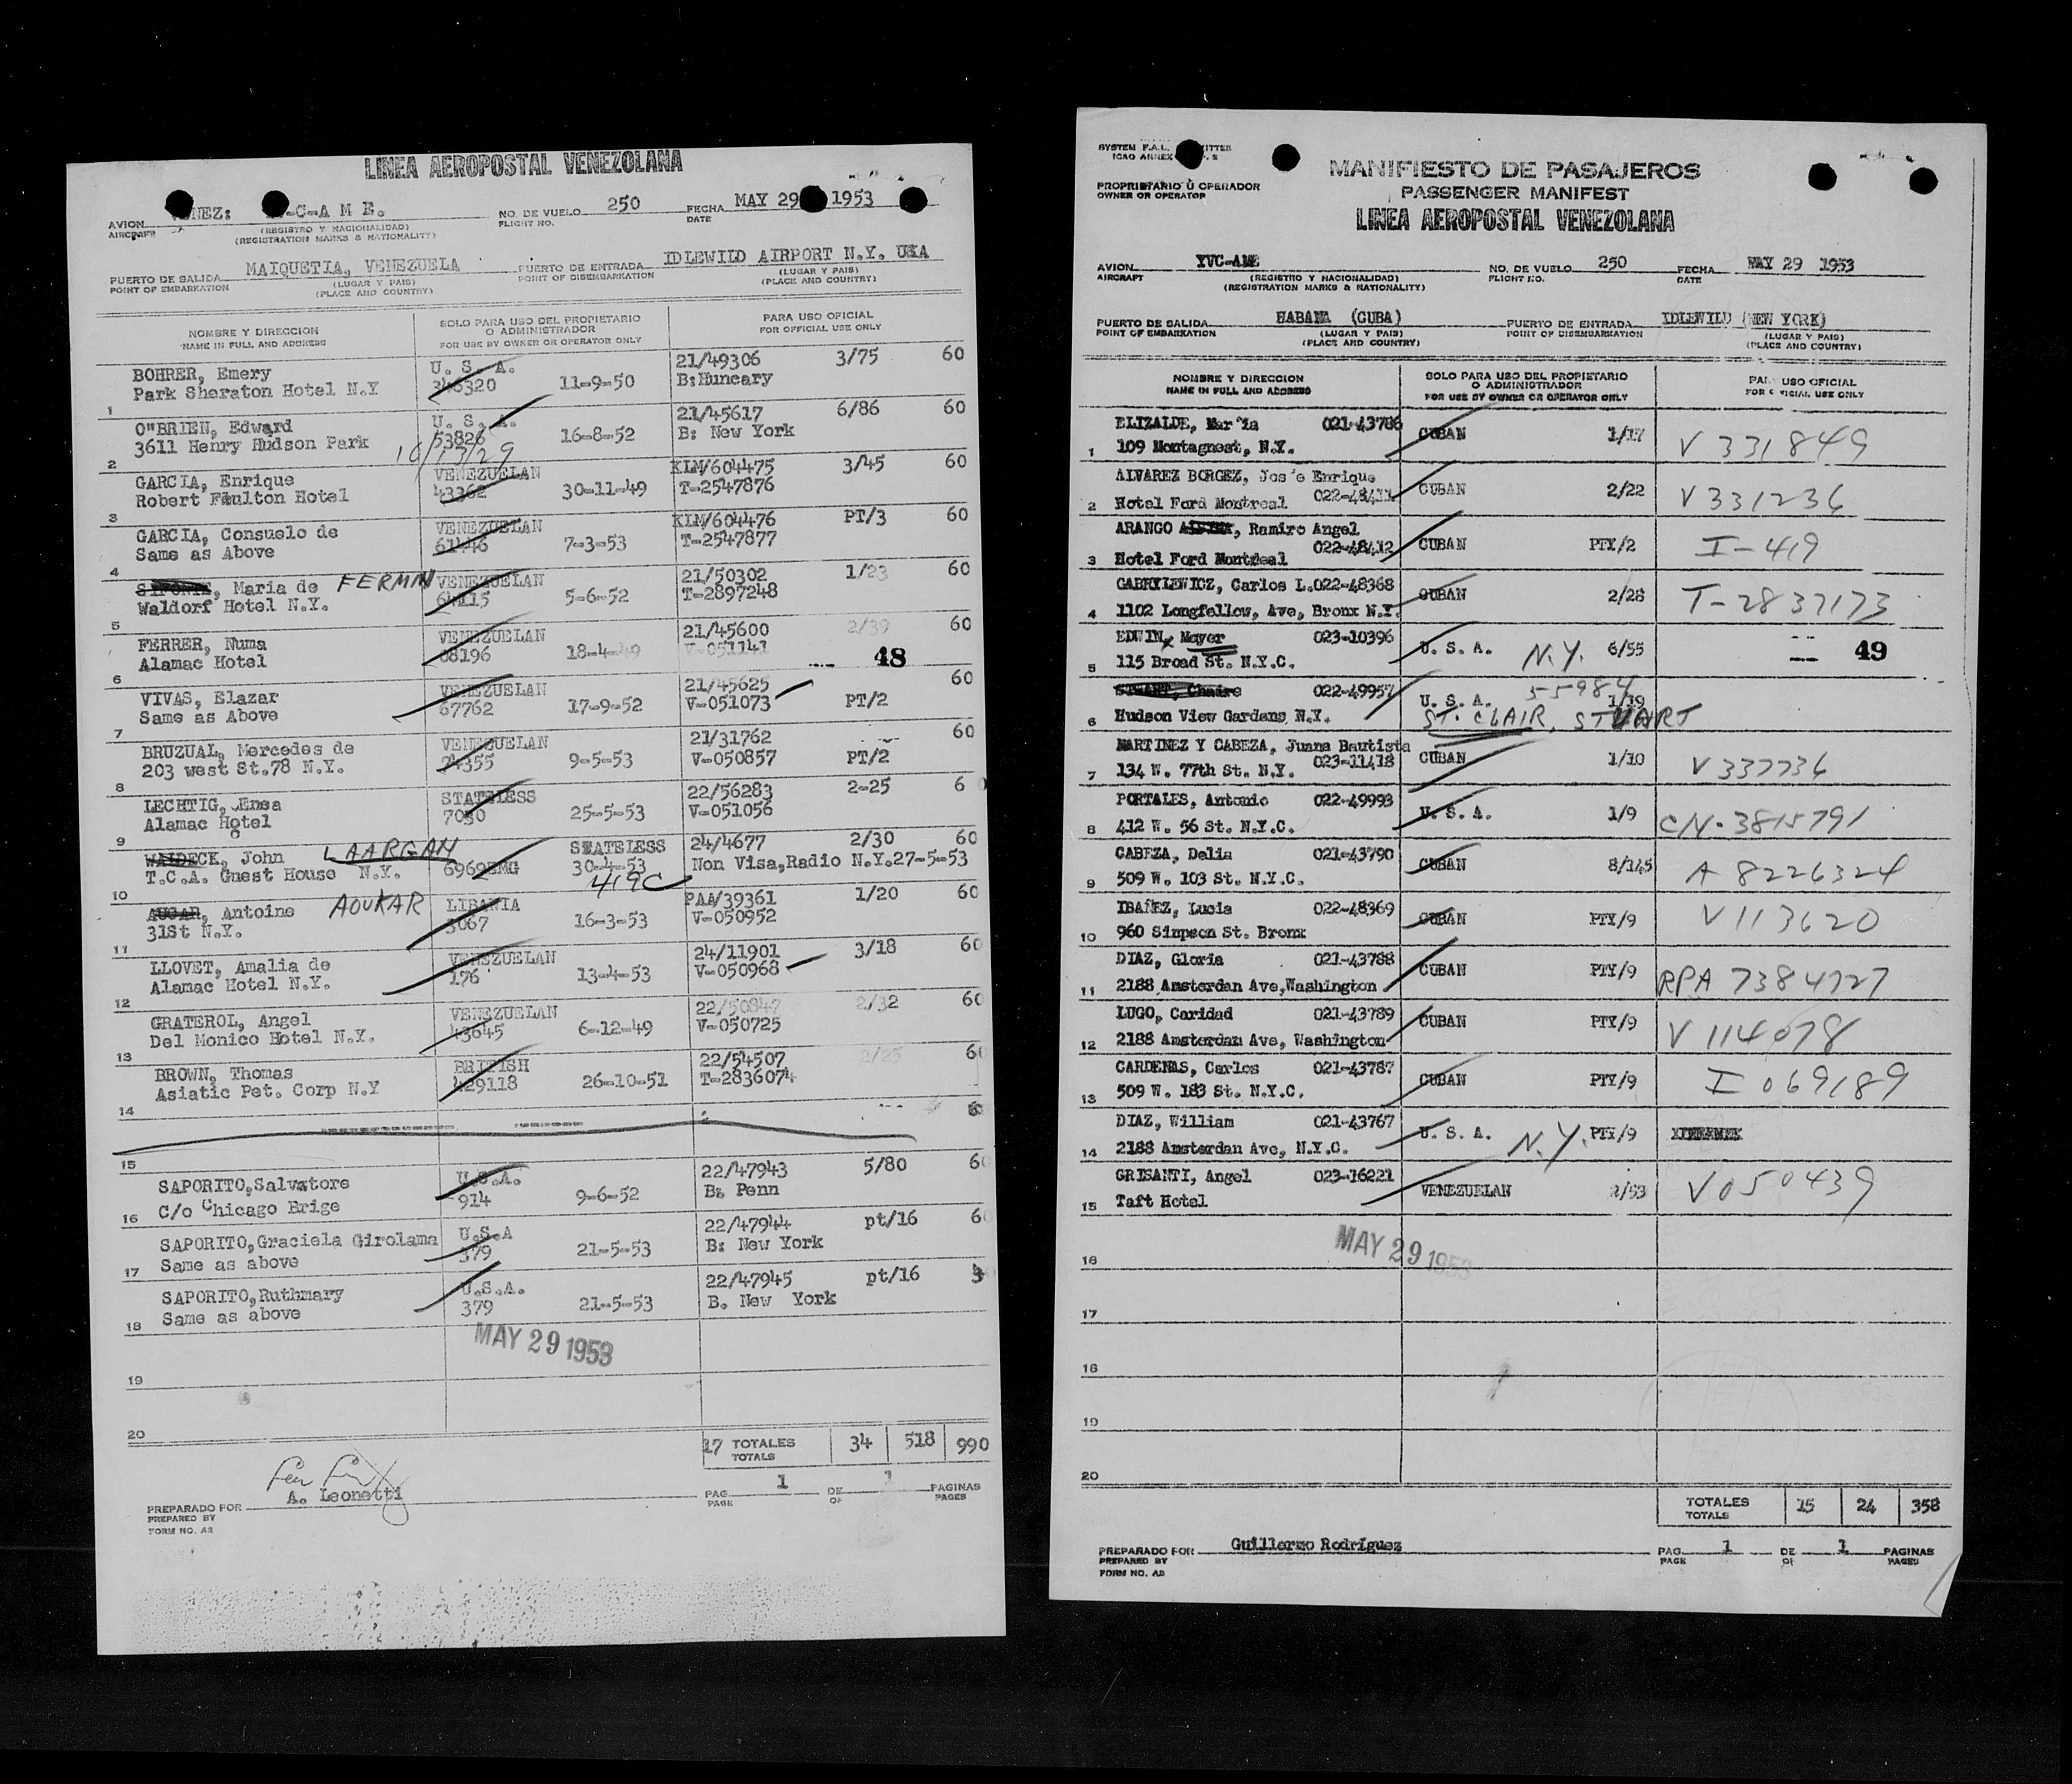 LINEA AEROPOSTAL VENEZOLANA
AVION AIRCRAFT
-C-A M E.
(REGISTRO Y NACIONALIDAD)
(REGISTRATION MARKS & NATIONALITY)
NO. DE VUELO 250
FLIGHT NO.
FECHA MAY 29 1953
DATE
PUERTO DE SALIDA MAIQUETIA, VENEZUELA
POINT OF EMBARKATION
(LUGAR Y PAIS)
(PLACE AND COUNTRY)
PUERTO DE ENTRADA IDLEWILD AIRPORT N.Y. USA
POINT OF DISEMBARKATION
(LUGAR Y PAIS)
(PLACE AND COUNTRY)
NOMBRE Y DIRECCION
NAME IN FULL AND ADDRESS
SOLO PARA USO DEL PROPIETARIO
O ADMINISTRADOR
FOR USE BY OWNER OR OPERATOR ONLY
PARA USO OFICIAL
FOR OFFICIAL USE ONLY
BOHRER, Emery U. S. A. 21/49306 3/75 60
1 Park Sheraton Hotel N.Y 11-9-50 B:Huncary
O"BRIEN, Edward U. S. A. 21/45617 6/86 60
2 3611 Henry Hudson Park 53826 16-8-52 B: New York
10/13/29
GARCIA, Enrique VENEZUELAN KLM/604475 3/45 60
3 Robert Faulton Hotel 43362 30-11-49 T-2547876
GARCIA, Consuelo de VENEZUELAN KLM/604476 PT/3 60
4 Same as Above 61446 7-3-53 T-2547877
, Maria de FERMIN VENEZUELAN 21/50302 1/23 60
5 Waldorf Hotel N.Y. 64115 5-6-52 T-2897248
FERRER, Numa VENEZUELAN 21/45600 2/39 60
6 Alamac Hotel 68196 18-4-49 V-051141 48
VIVAS, Elazar VENEZUELAN 21/45625 60
7 Same as Above 67762 17-9-52 V-051073 PT/2
BRUZUAL, Mercedes de VENEZUELAN 21/31762 60
8 203 west St.78 N.Y. 74355 9-5-53 V-050857 PT/2
LECHTIG, Enea STATELESS 22/56283 2-25 6
9 Alamac Hotel 7030 25-5-53 V-051056
WALDECK, John LAARGAN STATELESS 24/4677 2/30 60
10 T.C.A. Guest House N.Y. 6969EMG 30-4-53 Non Visa,Radio N.Y.27-5-53
419C
AUGAR, Antoine AOUKAR LIBANIA PAA/39361 1/20 60
11 31St N.Y. 3067 16-3-53 V-050952
LLOVET, Amalia de VENEZUELAN 24/11901 3/18 60
12 Alamac Hotel N.Y. 176 13-4-53 V-050968
GRATEROL, Angel VENEZUELAN 22/50847 2/32 60
13 Del Monico Hotel N.Y. 43645 6-12-49 V-050725
BROWN, Thomas BRITISH 22/54507 2/25 60
14 Asiatic Pet. Corp N.Y 429118 26-10-51 T-2836074
15
SAPORITO,Salvatore U.S.A. 22/47943 5/80 60
16 C/o Chicago Brige 914 9-6-52 B: Penn
SAPORITO,Graciela Girolama U.S.A 22/47944 pt/16 60
17 Same as above 379 21-5-53 B: New York
SAPORITO,Ruthmary U.S.A. 22/47945 pt/16
18 Same as above 379 21-5-53 B. New York
MAY 29 1953
19
20
17 TOTALES 34 518 990
TOTALS
A. Leonetti
PREPARADO POR
PREPARED BY
FORM NO. A2
PAG 1 DE 1 PAGINAS
PAGE OF PAGES
SYSTEM F.A.L.
ICAO ANNEX
MANIFIESTO DE PASAJEROS
PROPRIETARIO U OPERADOR
OWNER OR OPERATOR
PASSENGER MANIFEST
LINEA AEROPOSTAL VENEZOLANA
AVION YVC-AME
AIRCRAFT
(REGISTRO Y NACIONALIDAD)
(REGISTRATION MARKS & NATIONALITY)
NO. DE VUELO 250
FLIGHT NO.
FECHA MAY 29 1953
DATE
PUERTO DE SALIDA HABANA (CUBA)
POINT OF EMBARKATION
(LUGAR Y PAIS)
(PLACE AND COUNTRY)
PUERTO DE ENTRADA IDLEWILD (NEW YORK)
POINT OF DISEMBARKATION
(LUGAR Y PAIS)
(PLACE AND COUNTRY)
NOMBRE Y DIRECCION
NAME IN FULL AND ADDRESS
SOLO PARA USO DEL PROPIETARIO
O ADMINISTRADOR
FOR USE BY OWNER OR OPERATOR ONLY
USO OFICIAL
USE ONLY
ELIZALDE, Mar'ia 021-43786 CUBAN 1/17 V 331849
1 109 Montagnest, N.Y.
ALVAREZ BORGEZ, Jos'e Enrique
2 Hotel Ford Montreal 022-48411 CUBAN 2/22 V 331236
ARANGO, Ramiro Angel
3 Hotel Ford Montreal 022-48412 CUBAN PTY/2 I-419
GABRYLEWICZ, Carlos L.022-48368 CUBAN 2/28 T-2837173
4 1102 Longfellow, Ave, Bronx N.Y.
EDWIN, Mayer 023-10396 U. S. A. N.Y. 6/55 49
5 115 Broad St. N.Y.C.
STUART, Chaire 022-49957 U. S. A. 55984 1/19
6 Hudson View Gardens N.Y. ST. CLAIR, STUART
MARTINEZ Y CABEZA, Juana Bautista
7 134 W. 77th St. N.Y. 023-11418 CUBAN 1/10 V 337736
PORTALES, Antonio 022-49993 U. S. A. 1/9 CN-3815791
8 412 W. 56 St. N.Y.C.
CABEZA, Delia 021-43790 CUBAN 8/145 A 8226324
9 509 W. 103 St. N.Y.C.
IBAÑEZ, Lucia 022-48369 CUBAN PTY/9 V113620
10 960 Simpson St. Bronx
DIAZ, Gloria 021-43788 CUBAN PTY/9 RPA 7384727
11 2188 Amsterdan Ave,Washington
LUGO, Caridad 021-43789 CUBAN PTY/9 V 114078
12 2188 Amsterdan Ave, Washington
CARDENAS, Carlos 021-43787 CUBAN PTY/9 I 069189
13 509 W. 183 St. N.Y.C.
DIAZ, William 021-43767 U. S. A. N.Y. PTY/9
14 2188 Amsterdan Ave, N.Y.C.
GRISANTI, Angel 023-16221 VENEZUELAN 2/53 V050439
15 Taft Hotel
MAY 29 1953
16
17
18
19
20
TOTALES 15 24 358
TOTALS
PREPARADO POR Guillermo Rodríguez
PREPARED BY
FORM NO. A2
PAG 1 DE 1 PAGINAS
PAGE OF PAGES